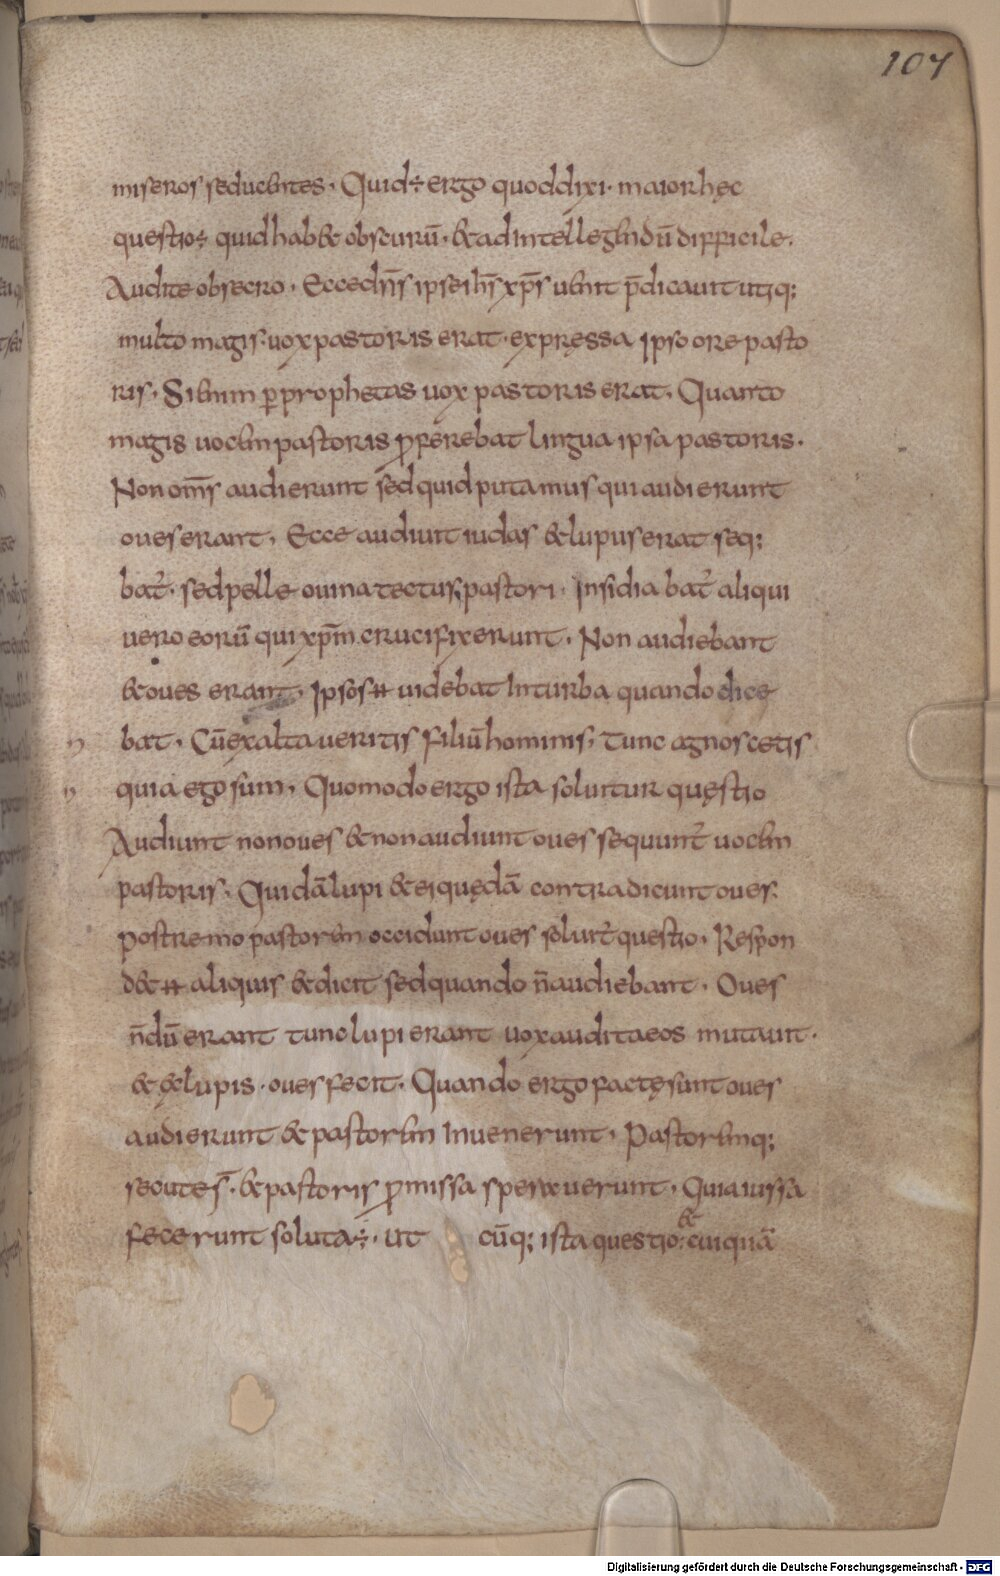 107
miseros seducentes. Quid÷ ergo quod dixi. maior hęc
questio÷ quid hab& obscurū. & ad intellegendū difficile.
Audite obsecro. Ecce dn̄s ipse ih̄s xp̄s uenit p̄dicauit utiq;
multo magis. uox pastoris erat. expręssa Ipso ore pasto
ris. Si enim ꝑ prophetas uox pastoris erat. Quanto
magis uocem pastoris ꝓferebat lingua ipsa pastoris.
Non om̄s audierunt sed quid putamus qui audierunt
oues erant. Ecce audiuit iudas & lupus erat seq;
bat̄. sed pelle ouina tectus; pastori. Insidiabat̄ aliqui
uero eorū qui xp̄m crucifixerunt. Non audiebant
& oues erant. Ipsos ħ uidebat In turba quando dice
bat. Cū exaltaueritis filiū hominis. tunc agnoscetis
quia ego sum. Quomodo ergo ista soluitur quęstio
Audiunt non oues & non audiunt oues sequunt̄ uocem
pastoris. Quidā lupi & ei quędā contradicunt oues.
postremo pastorem occidunt oues soluit̄ questio. Respon
d& ħ aliquis & dicit sed quando n̄ audiebant. Oues
n̄dū erant tunc lupi erant uox audita eos mutauit.
& ę& lupis. oues fecit. Quando ergo factę sunt oues
audierunt & pastorem Inuenerunt. Pastoremq;
secuti es̄. & pastoris ꝓmissa sperauerunt. Quia iussa
fecerunt soluta÷. ut cūq; ista questio. & cuiquā
Digitalisierung gefördert durch die Deutsche Forschungsgemeinschaft - DFG